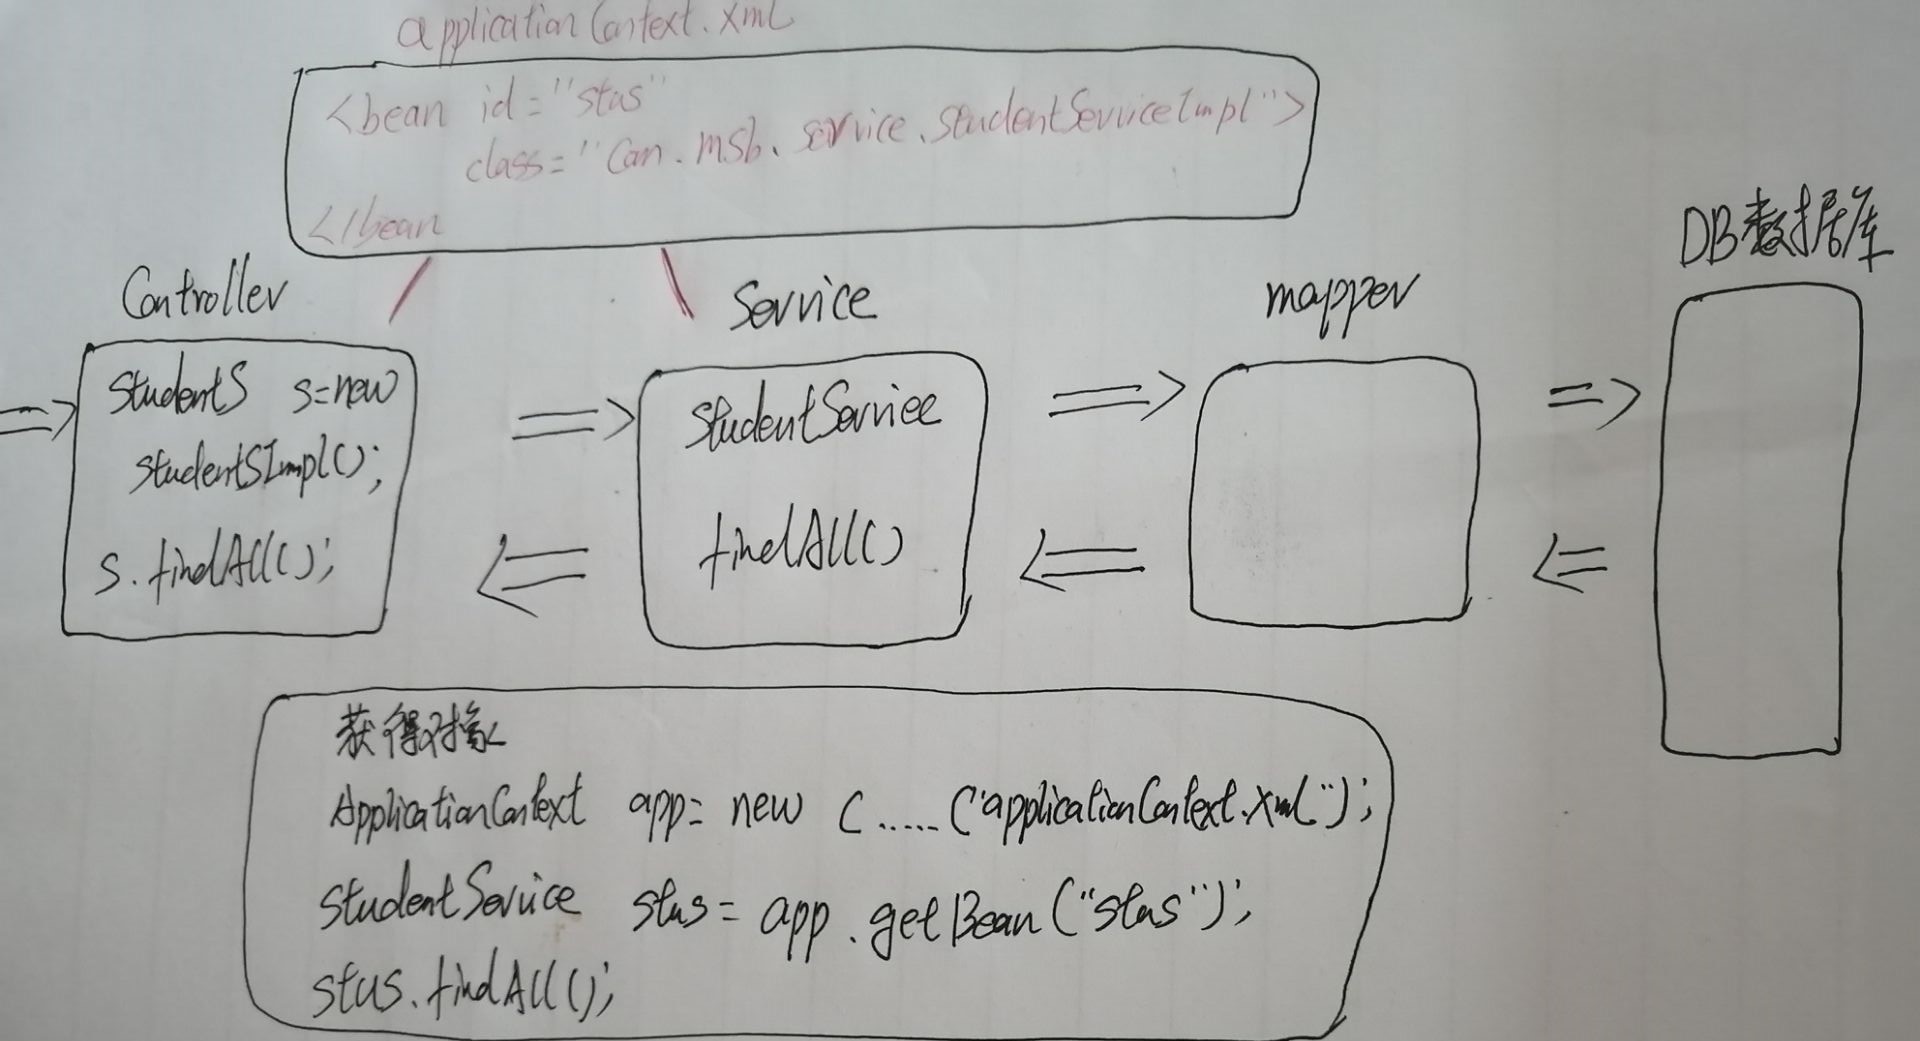 applicationContext.xml
<bean id="stus"
class="Com.msb.service.studentServiceImpl">
</bean
Controller
Service
mapper
DB数据库
StudentS s=new
studentSImpl();
s.findAll();
StudentService
findAll()
获得对象
ApplicationContext app= new C.....("applicationContext.xml");
StudentService stus= app.getBean("stus");
stus.findAll();